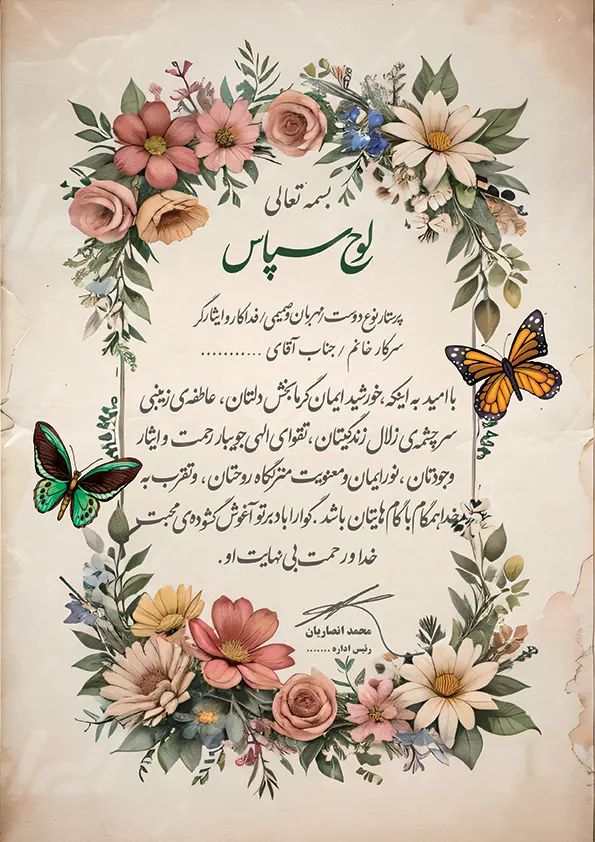 بسمه تعالی
لوح سپاس
پرستار نوع دوست / مهربان و صمیمی / فداکار و ایثارگر
سرکار خانم / جناب آقای ...........
با امید به اینکه، خورشید ایمان گرمابخش دلتان، عاطفه‌ی زینبی
سرچشمه‌ی زلال زندگیتان، تقوای الهی جویبار رحمت و ایثار
وجودتان، نور ایمان و معنویت منزلگاه روحتان، و تقرب به
خدا همگام با گام هایتان باشد. گوارا باد بر تو آغوش گشوده‌ی محبت
خدا و رحمت بی نهایت او.
محمد انصاریان
رئیس اداره .......